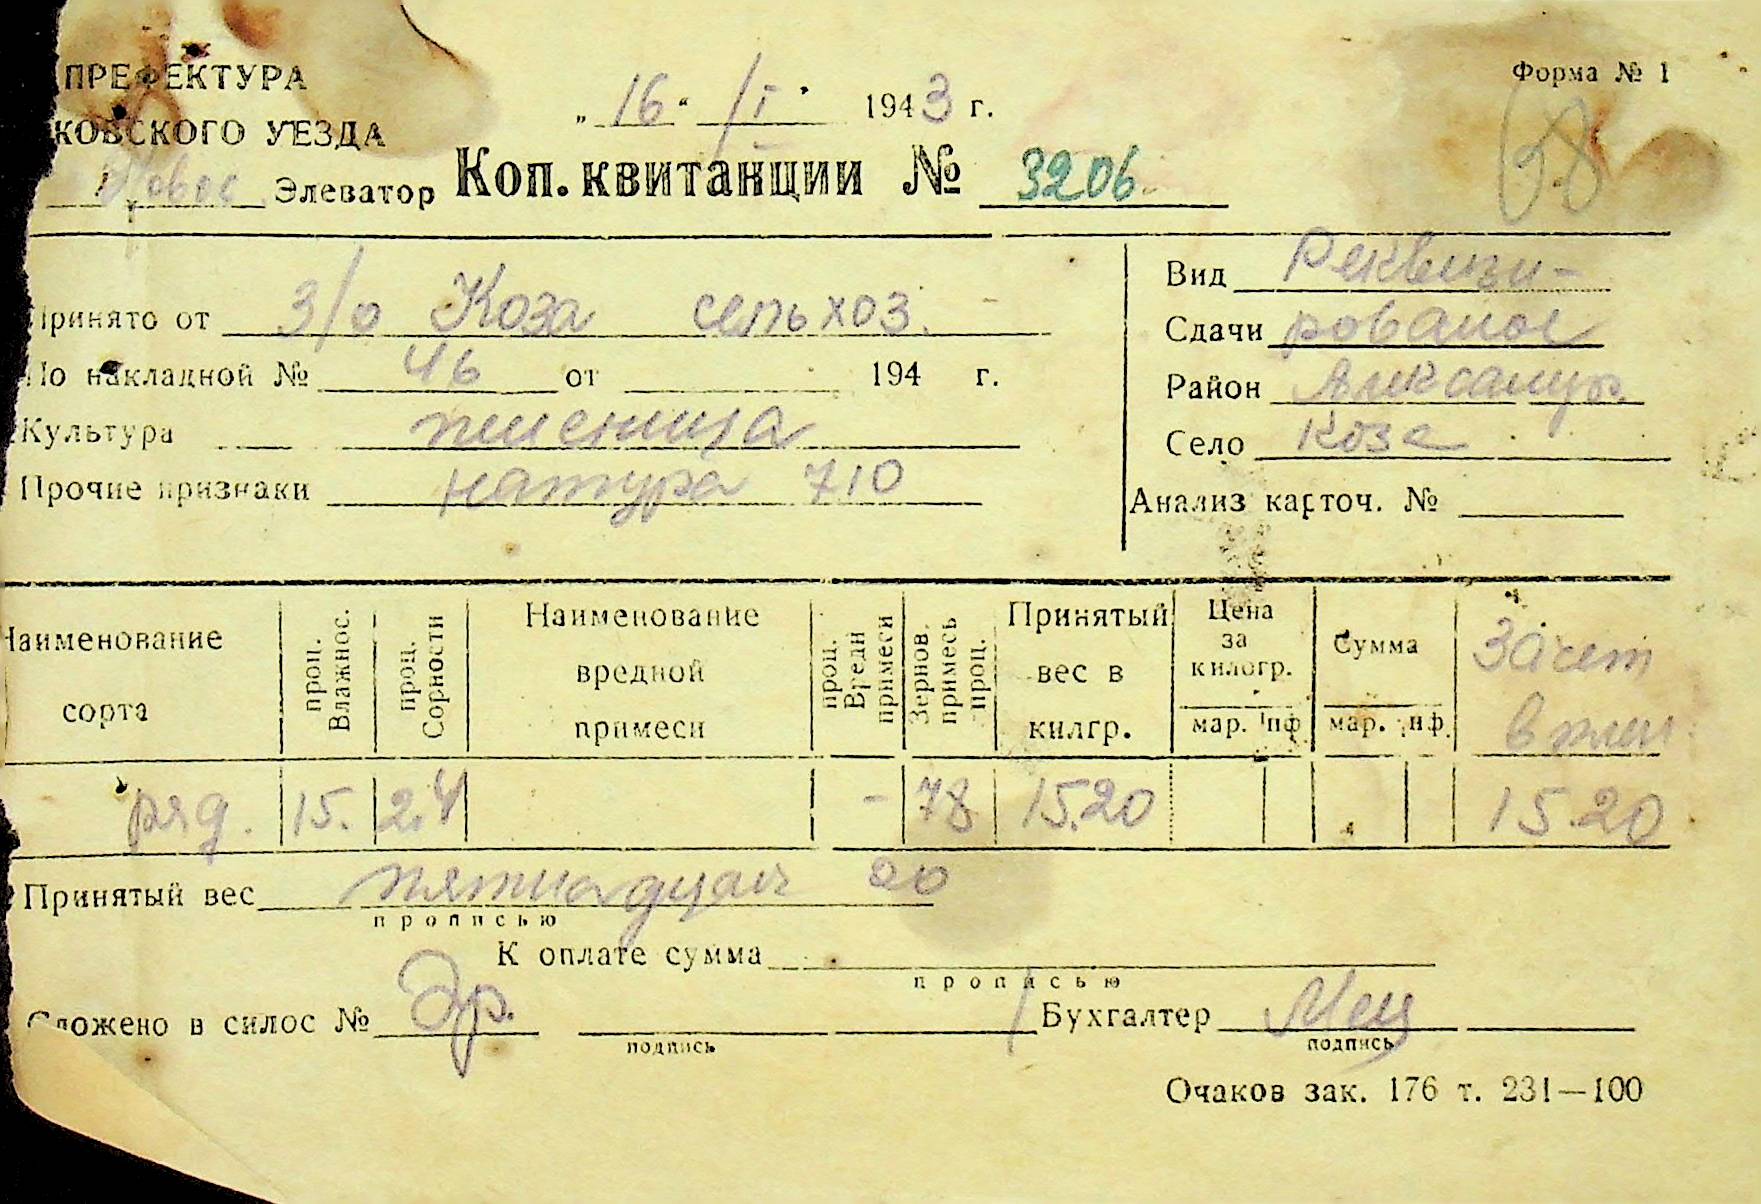 ПРЕФЕКТУРА
КОВСКОГО УЕЗДА
Элеватор
Форма № 1
„ 16 “ /I 1943 г.
Коп. квитанции № 3206
Принято от З/о Коза сельхоз.
По накладной № 46 от 194 г.
Культура пшеница
Прочие признаки натура 710
Вид Реквизи-
Сдачи рованое
Район
Село Коза
Анализ карточ. №
Наименование сорта
проц. Влажнос.
проц. Сорности
Наименование вредной примеси
проц. Вредн примеси
Зернов. примесь проц.
Принятый вес в килгр.
Цена за килогр.
мар. пф
Сумма
мар. пф.
Зачет
ряд. 15. 2.4 - 78 1520 1520
Принятый вес пятнадцат 20
прописью
К оплате сумма
прописью
Сложено в силос №
подпись
Бухгалтер
подпись
Очаков зак. 176 т. 231—100